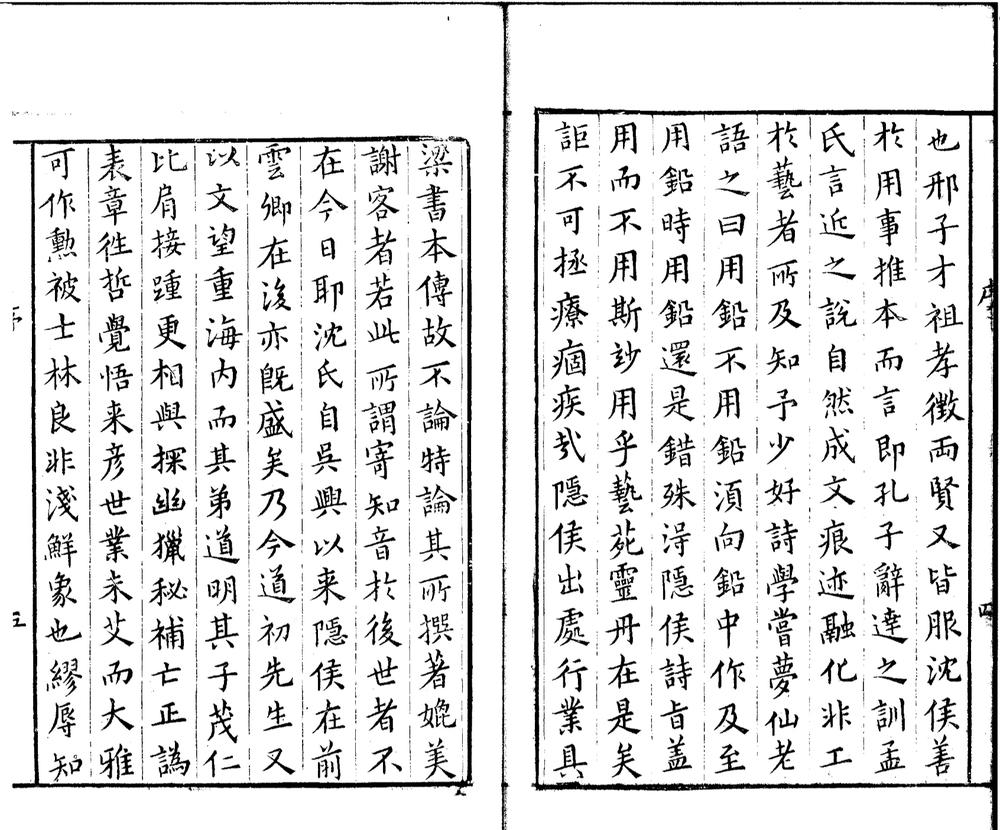 也邢子才祖孝徵両賢又皆服沈侯善
於用事推本而言即孔子辭達之訓孟
氏言近之説自然成文痕迹融化非工
於藝者所及知予少好詩學嘗夢仙老
語之曰用鉛不用鉛湏向鉛中作及至
用鉛時用鉛還是錯殊淂隱侯詩旨盖
用而不用斯玅用乎藝苑靈丹在是矣
詎不可拯療痼疾㢤隱侯出處行業具
梁書本傳故不論特論其所撰著媲美
謝客者若此所謂寄知音於後世者不
在今日耶沈氏自吳興以来隱侯在前
雲卿在後亦旣盛矣乃今道初先生又
以文望重海内而其弟道明其子茂仁
比肩接踵更相與探幽獵秘補亡正譌
表章徃哲覺悟来彦世業未艾而大雅
可作勲被士林良非淺鮮象也繆辱知
序
四
五